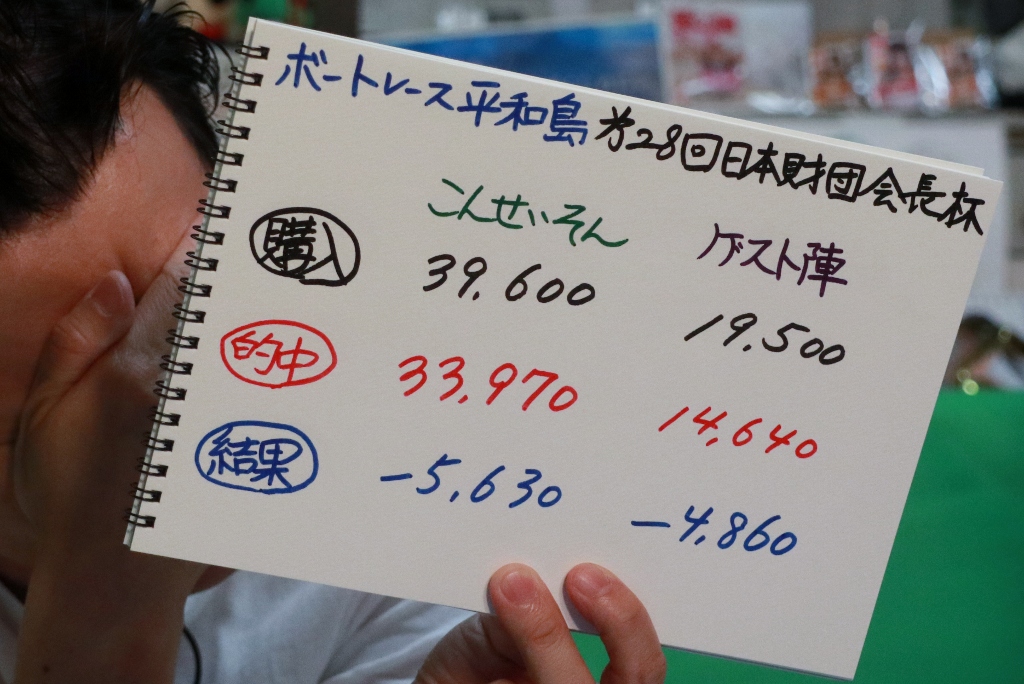 ボートレース平和島 第28回日本財団会長杯
こんせいそん ゲスト陣
購入 39,600 19,500
的中 33,970 14,640
結果 -5,630 -4,860